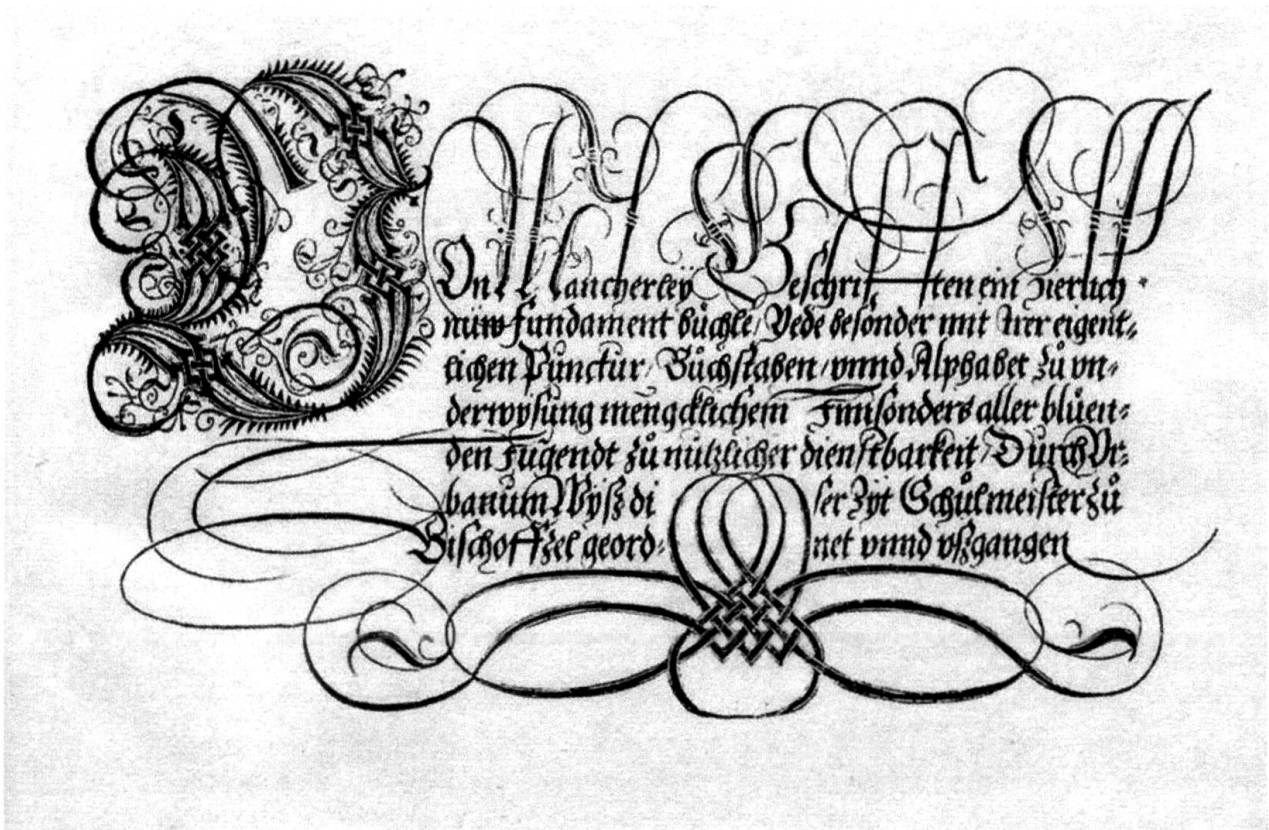 VOn Mancherleÿ Geschrifften ein zierlich
nüw fundament büchle / Yede besonder mit irer eigent-
lichen Punctur / Bůchstaben / vnnd Alphabet zů vn-
derwysung mengcklichem Jnnsonders aller blůen-
den Jugendt zů nutzlicher dienstbarkeit / Durch Vr-
banum Wyß diser Zyt Schůlmeister zů
Bischoffzel geord-net vnnd vßgangen